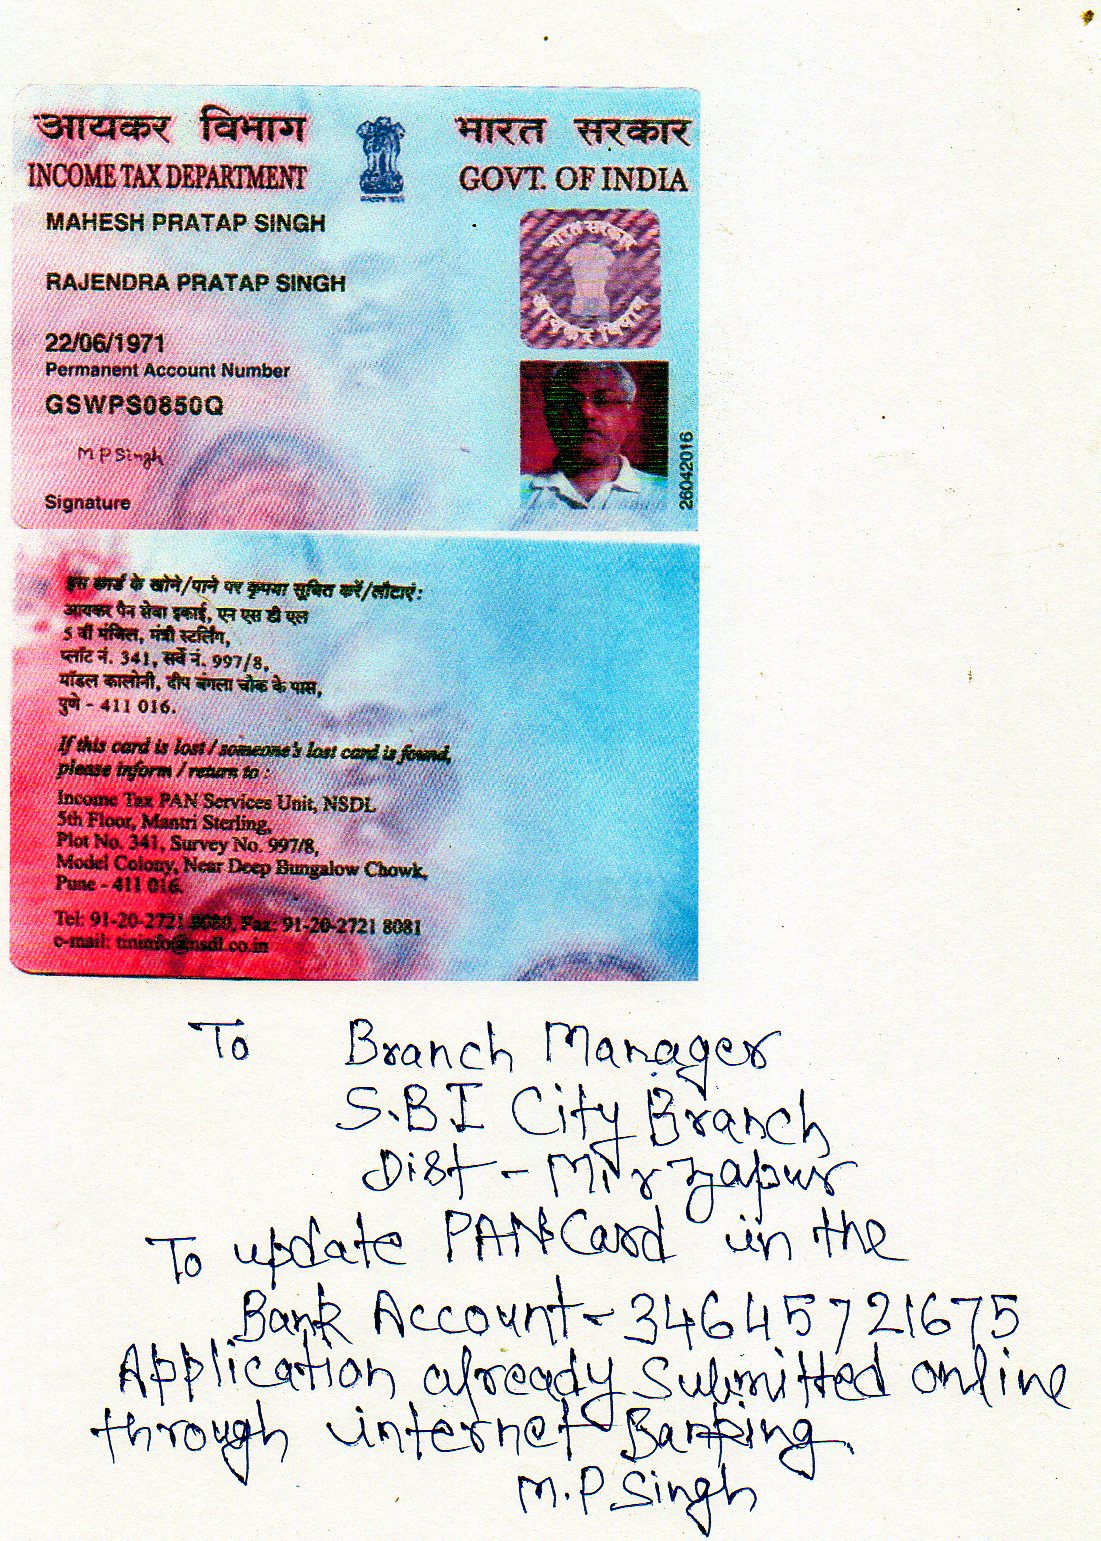 आयकर विभाग
INCOME TAX DEPARTMENT
भारत सरकार
GOVT. OF INDIA
MAHESH PRATAP SINGH
RAJENDRA PRATAP SINGH
22/06/1971
Permanent Account Number
GSWPS0850Q
M P Singh
Signature
भारत सरकार
आयकर विभाग
26042016
इस कार्ड के खोने/पाने पर कृपया सूचित करें/लौटाएं:
आयकर पैन सेवा इकाई, एन एस डी एल
5 वीं मंजिल, मंत्री स्टर्लिंग,
प्लॉट नं. 341, सर्वे नं. 997/8,
मॉडल कालोनी, दीप बंगला चौक के पास,
पुणे - 411 016.
If this card is lost / someone's lost card is found,
please inform / return to :
Income Tax PAN Services Unit, NSDL
5th Floor, Mantri Sterling,
Plot No. 341, Survey No. 997/8,
Model Colony, Near Deep Bungalow Chowk,
Pune - 411 016.
Tel: 91-20-2721 8080, Fax: 91-20-2721 8081
e-mail: tininfo@nsdl.co.in
To Branch Manager
S.B.I City Branch
Dist - Mirzapur
To update PAN Card in the
Bank Account - 34645721675
Application already submitted online
through internet Banking.
M.P Singh